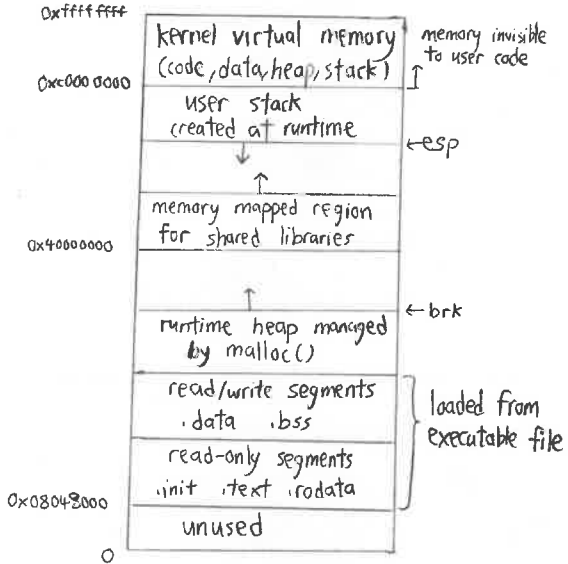 0xffffffff
kernel virtual memory
(code, data, heap, stack)
memory invisible
to user code
0xc0000000
user stack
created at runtime
←esp
memory mapped region
for shared libraries
0x40000000
←brk
runtime heap managed
by malloc()
read/write segments
.data .bss
loaded from
executable file
read-only segments
.init .text .rodata
0x08048000
unused
0